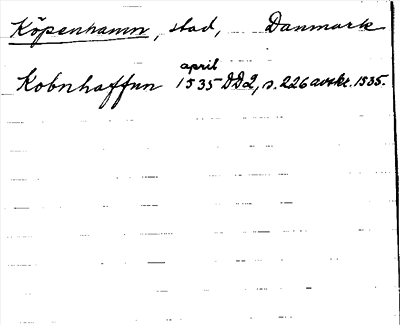 Köpenhamn, stad, Danmark
april
Kobnhaffnn 1535 DD2, s. 226 avskr. 1535.